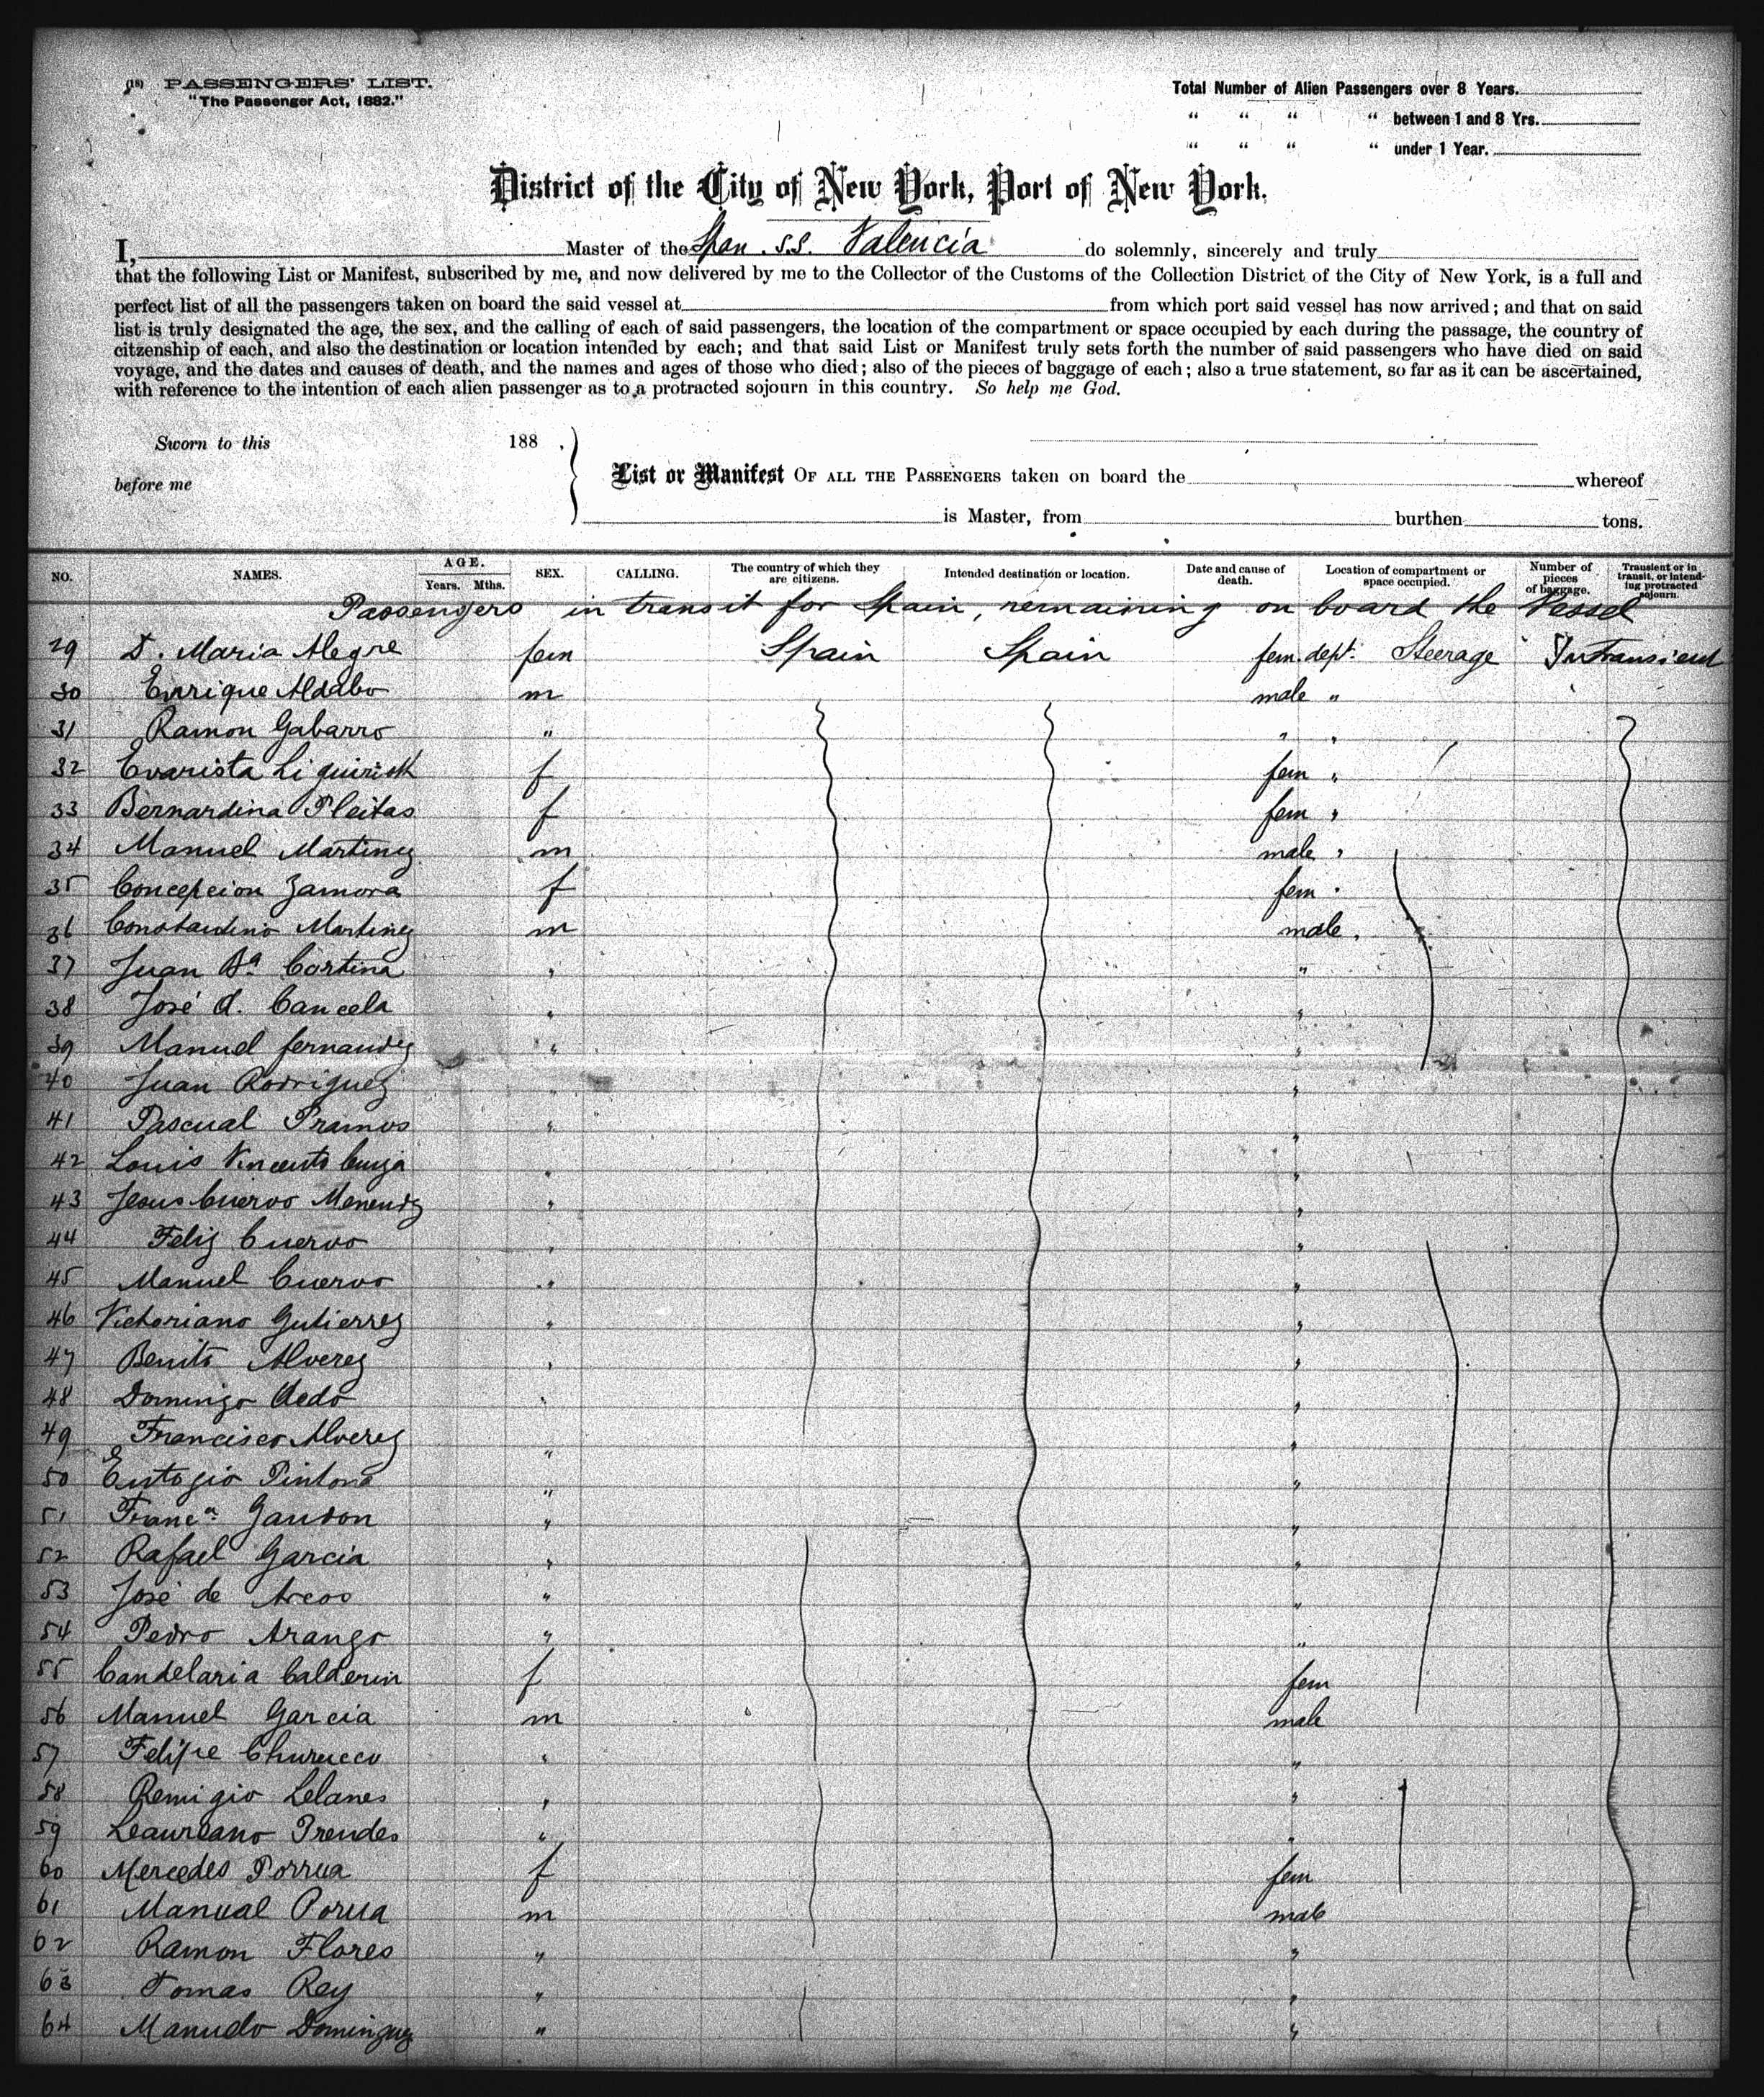 (18) PASSENGERS' LIST.
"The Passenger Act, 1882."
Total Number of Alien Passengers over 8 Years.
" " " " between 1 and 8 Yrs.
" " " " under 1 Year.
District of the City of New York, Port of New York.
I, Master of the Span. S.S. Valencia do solemnly, sincerely and truly
that the following List or Manifest, subscribed by me, and now delivered by me to the Collector of the Customs of the Collection District of the City of New York, is a full and
perfect list of all the passengers taken on board the said vessel at from which port said vessel has now arrived; and that on said
list is truly designated the age, the sex, and the calling of each of said passengers, the location of the compartment or space occupied by each during the passage, the country of
citzenship of each, and also the destination or location intended by each; and that said List or Manifest truly sets forth the number of said passengers who have died on said
voyage, and the dates and causes of death, and the names and ages of those who died; also of the pieces of baggage of each; also a true statement, so far as it can be ascertained,
with reference to the intention of each alien passenger as to a protracted sojourn in this country. So help me God.
Sworn to this 188
before me
List or Manifest OF ALL THE PASSENGERS taken on board the whereof
is Master, from burthen tons.
NO. NAMES. AGE. Years. Mths. SEX. CALLING. The country of which they are citizens. Intended destination or location. Date and cause of death. Location of compartment or space occupied. Number of pieces of baggage. Transient or in transit, or intending protracted sojourn.
Passengers in transit for Spain, remaining on board the Vessel
29 D. Maria Alegre fem Spain Spain fem. dept. Steerage In Transient
30 Enrique Aldabo m male "
31 Ramon Gabarro " " "
32 Evarista f fem "
33 Bernardina Pleitas f fem "
34 Manuel Martinez m male "
35 Concepcion Zamora f fem "
36 Constantino Martinez m male "
37 Juan Ba Cortina " "
38 José A. Cancela " "
39 Manuel fernandez " "
40 Juan Rodriguez " "
41 Pascual Pramos " "
42 Louis Vincento " "
43 Jesus Cuervo Menendz " "
44 Feliz Cuervo " "
45 Manuel Cuervo " "
46 Victoriano Gutierrez " "
47 Benito Alverez " "
48 Domingo Aedo " "
49 Francisco Alverez " "
50 Eutogio Pintona " "
51 Franca Gaudon " "
52 Rafael Garcia " "
53 José de Arcos " "
54 Pedro Arango " "
55 Candelaria Calderin f fem
56 Manuel Garcia m male
57 Felipe Churucco " "
58 Remigio Lelanes " "
59 Leaureano Prendes " "
60 Mercedes Porrua f fem
61 Manual Porua m male
62 Ramon Flores " "
63 Tomas Rey " "
64 Manuelo Dominguez " "